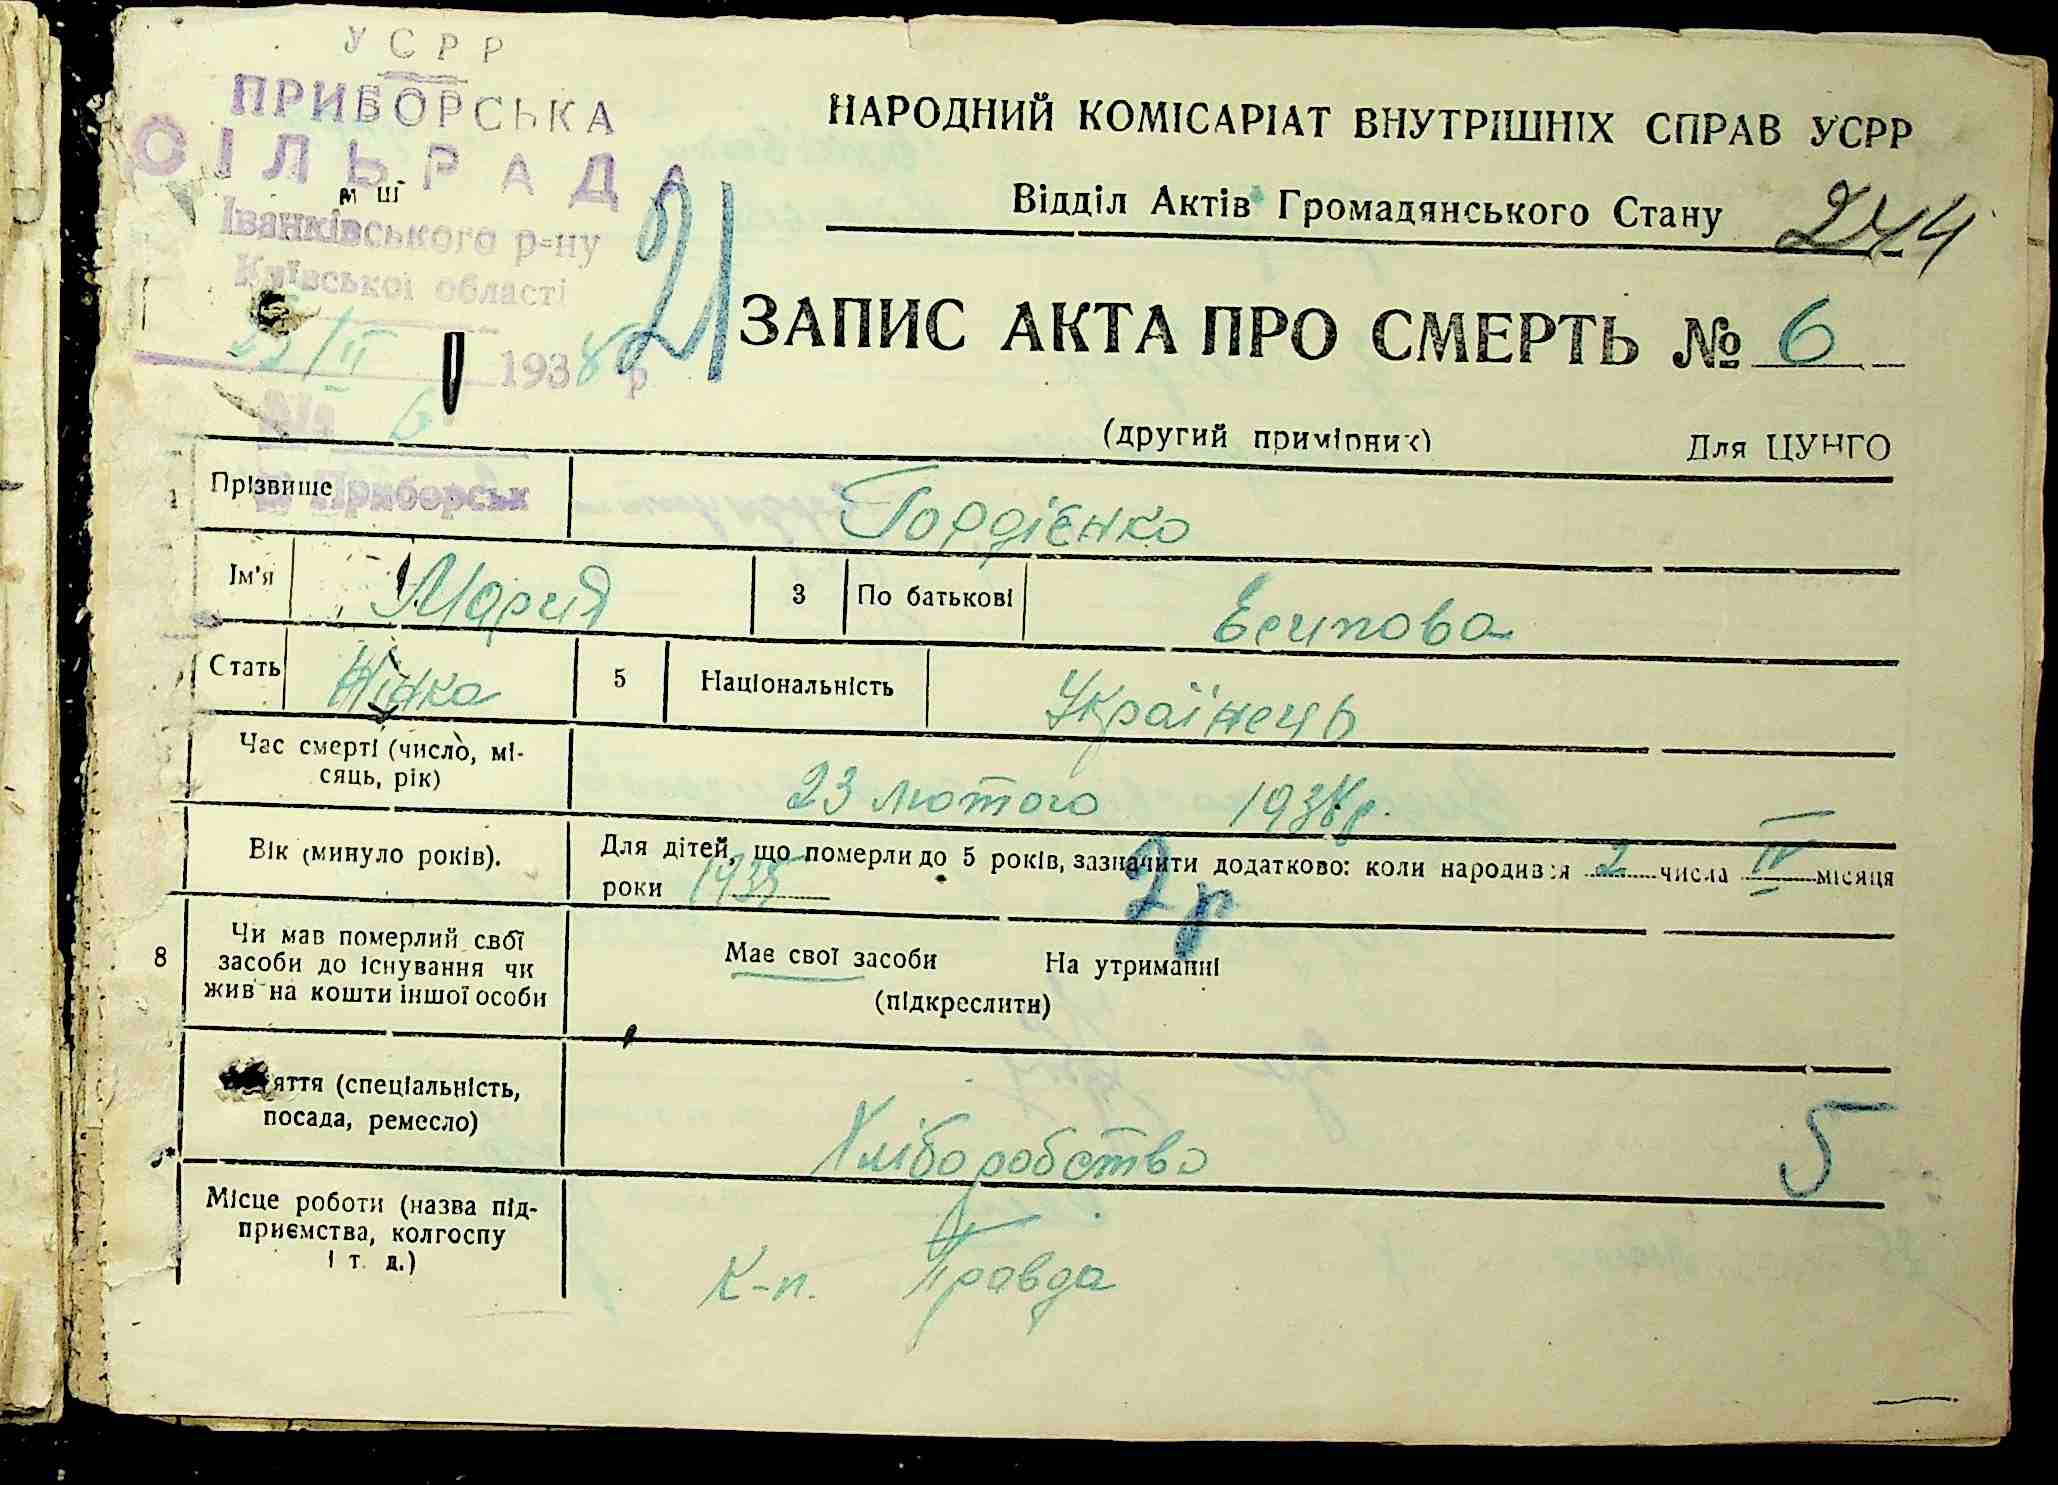 УСРР
ПРИБОРСЬКА
СІЛЬРАДА
Іванківського р-ну
Київської області
23/II 1938 р
№ 6
м. Приборськ
21
НАРОДНИЙ КОМІСАРІАТ ВНУТРІШНІХ СПРАВ УСРР
Відділ Актів Громадянського Стану
244
ЗАПИС АКТА ПРО СМЕРТЬ № 6
(другий примірник) Для ЦУНГО
1 Прізвище Гордієнко
Ім'я Мария 3 По батькові Есипова
Стать Жінка 5 Національність Українець
Час смерті (число, мі-
сяць, рік) 23 лютого 1938 р.
Вік (минуло років). Для дітей, що померли до 5 років, зазначити додатково: коли народився 2 числа IV місяця
роки 1935
2 р
8 Чи мав померлий свої
засоби до існування чи
жив на кошти іншої особи
Має свої засоби На утриманні
(підкреслити)
яття (спеціальність,
посада, ремесло) Хліборобство
5
Місце роботи (назва під-
приємства, колгоспу
і т. д.) К-п. Правда